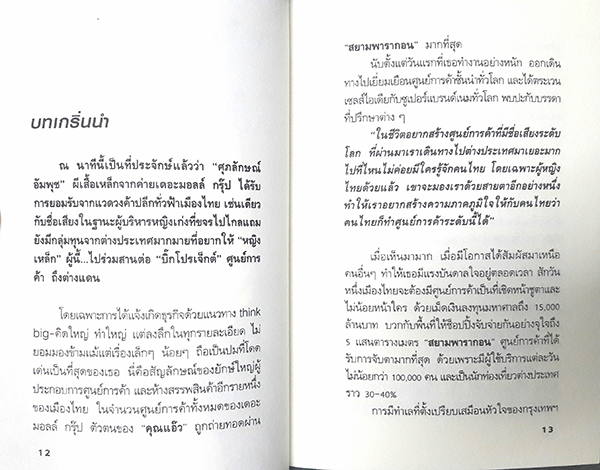 บทเกริ่นนำ
ณ นาทีนี้เป็นที่ประจักษ์แล้วว่า "ศุภลักษณ์
อัมพุช" ผีเสื้อเหล็กจากค่ายเดอะมอลล์ กรุ๊ป ได้รับ
การยอมรับจากแวดวงค้าปลีกทั่วฟ้าเมืองไทย เช่นเดียว
กับชื่อเสียงในฐานะผู้บริหารหญิงเก่งที่ขจรไปไกลแถม
ยังมีกลุ่มทุนจากต่างประเทศมากมายที่อยากให้ "หญิง
เหล็ก" ผู้นี้...ไปร่วมสานต่อ "บิ๊กโปรเจ็กต์" ศูนย์การ
ค้า ถึงต่างแดน
โดยเฉพาะการได้แจ้งเกิดธุรกิจด้วยแนวทาง think
big-คิดใหญ่ ทำใหญ่ แต่ลงลึกในทุกรายละเอียด ไม่
ยอมมองข้ามแม้แต่เรื่องเล็กๆ น้อยๆ ถือเป็นปมที่โดด
เด่นเป็นที่สุดของเธอ นี่คือสัญลักษณ์ของยักษ์ใหญ่ผู้
ประกอบการศูนย์การค้า และห้างสรรพสินค้าอีกรายหนึ่ง
ของเมืองไทย ในจำนวนศูนย์การค้าทั้งหมดของเดอะ
มอลล์ กรุ๊ป ตัวตนของ "คุณแอ๊ว" ถูกถ่ายทอดผ่าน
12
"สยามพารากอน" มากที่สุด
นับตั้งแต่วันแรกที่เธอทำงานอย่างหนัก ออกเดิน
ทางไปเยี่ยมเยือนศูนย์การค้าชั้นนำทั่วโลก และได้ตระเวน
เซลส์ไอเดียกับซูเปอร์แบรนด์เนมทั่วโลก พบปะกับบรรดา
ที่ปรึกษาต่าง ๆ
"ในชีวิตอยากสร้างศูนย์การค้าที่มีชื่อเสียงระดับ
โลก ที่ผ่านมาเราเดินทางไปต่างประเทศมาเยอะมาก
ไปที่ไหนไม่ค่อยมีใครรู้จักคนไทย โดยเฉพาะผู้หญิง
ไทยด้วยแล้ว เขาจะมองเราด้วยสายตาอีกอย่างหนึ่ง
ทำให้เราอยากสร้างความภาคภูมิใจให้กับคนไทยว่า
คนไทยก็ทำศูนย์การค้าระดับนี้ได้"
เมื่อเห็นมามาก เมื่อมีโอกาสได้สัมผัสมาเหนือ
คนอื่นๆ ทำให้เธอมีแรงบันดาลใจอยู่ตลอดเวลา สักวัน
หนึ่งเมืองไทยจะต้องมีศูนย์การค้าเป็นที่เชิดหน้าชูตาและ
ไม่น้อยหน้าใคร ด้วยเม็ดเงินลงทุนมหาศาลถึง 15,000
ล้านบาท บวกกับพื้นที่ให้ช็อปปิ้งจับจ่ายกันอย่างจุใจถึง
5 แสนตารางเมตร "สยามพารากอน" ศูนย์การค้าที่ได้
รับการจับตามากที่สุด ด้วยเพราะมีผู้ใช้บริการแต่ละวัน
ไม่น้อยกว่า 100,000 คน และเป็นนักท่องเที่ยวต่างประเทศ
ราว 30-40%
การมีทำเลที่ตั้งเปรียบเสมือนหัวใจของกรุงเทพฯ
13